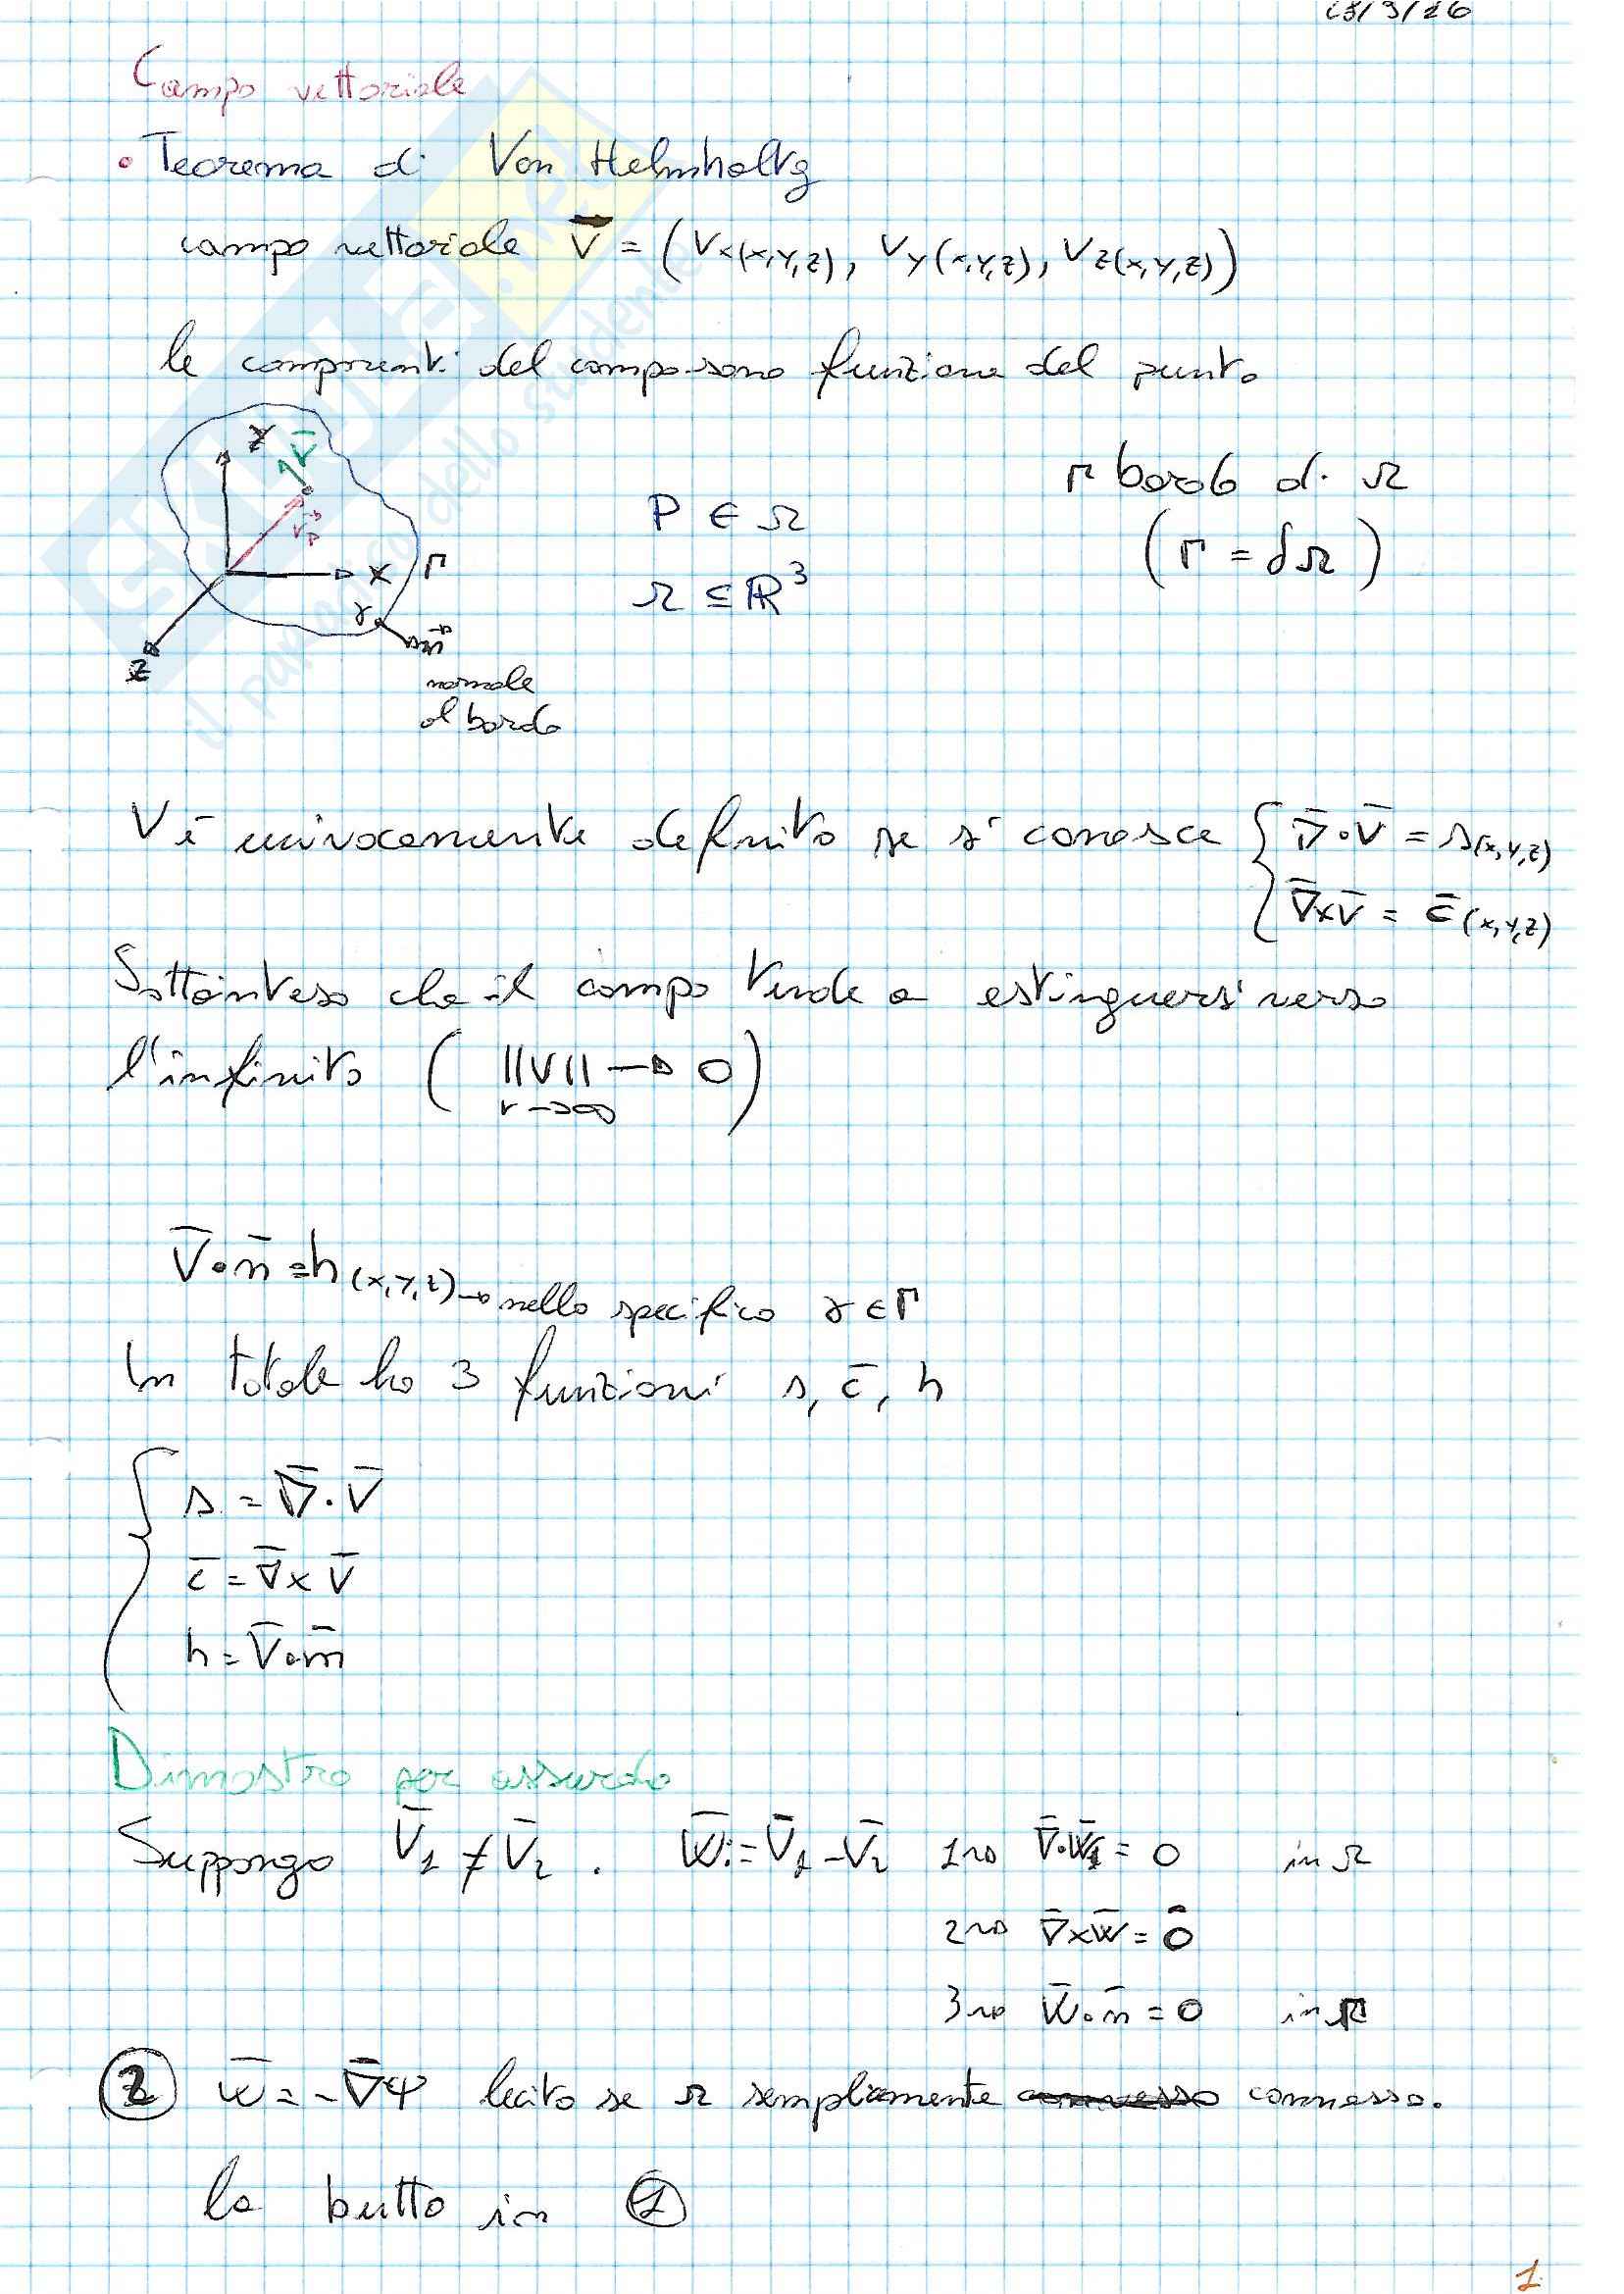 Campo vettoriale
• Teorema di Von Helmholtz
campo vettoriale V̅ = (Vx(x,y,z), Vy(x,y,z), Vz(x,y,z))
le componenti del campo sono funzione del punto
Y V̅
r⃗p
X Γ
γ n⃗
Z
normale al bordo
P ∈ Ω
Ω ⊆ ℝ³
Γ bordo di Ω
(Γ = δΩ)
V è univocamente definito se si conosce { ∇̅•V̅ = s(x,y,z)
∇̅×V̅ = c̅(x,y,z)
Sottointeso che il campo tende a estinguersi verso
l'infinito ( ||V|| → 0 )
r→∞
V̅•n̅ = h(x,y,z) → nello specifico γ ∈ Γ
In totale ho 3 funzioni s, c̅, h
{ s = ∇̅·V̅
c̅ = ∇̅×V̅
h = V̅•n̅
Dimostro per assurdo
Suppongo V̅1 ≠ V̅2 . W̅ := V̅1 - V̅2 1→ ∇̅•W̅ = 0 in Ω
2→ ∇̅×W̅ = 0̅
3→ W̅•n̅ = 0 in Γ
② w̅ = -∇̅Ψ lecito se Ω semplicemente connesso.
lo butto in ①
1.
SKUOLA.net
il paradiso dello studente